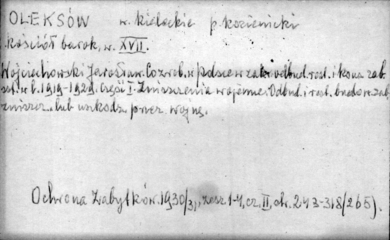 OLEKSÓW w. kieleckie p. kozienicki
kościół barok. w. XVII.
Wojciechowski Jarosław. Co zrob. w Polsce w zakr. odbud. rest. i kons. zab.
szt. w l. 1919-1929. Część I. Zniszczenia wojenne. Odbud. i rest. budow. zab.
zniszcz. lub uszkodz. przez wojnę.
Ochrona Zabytków. 1930/31, zesz 1-4, cz. II, str. 243-318 (265).